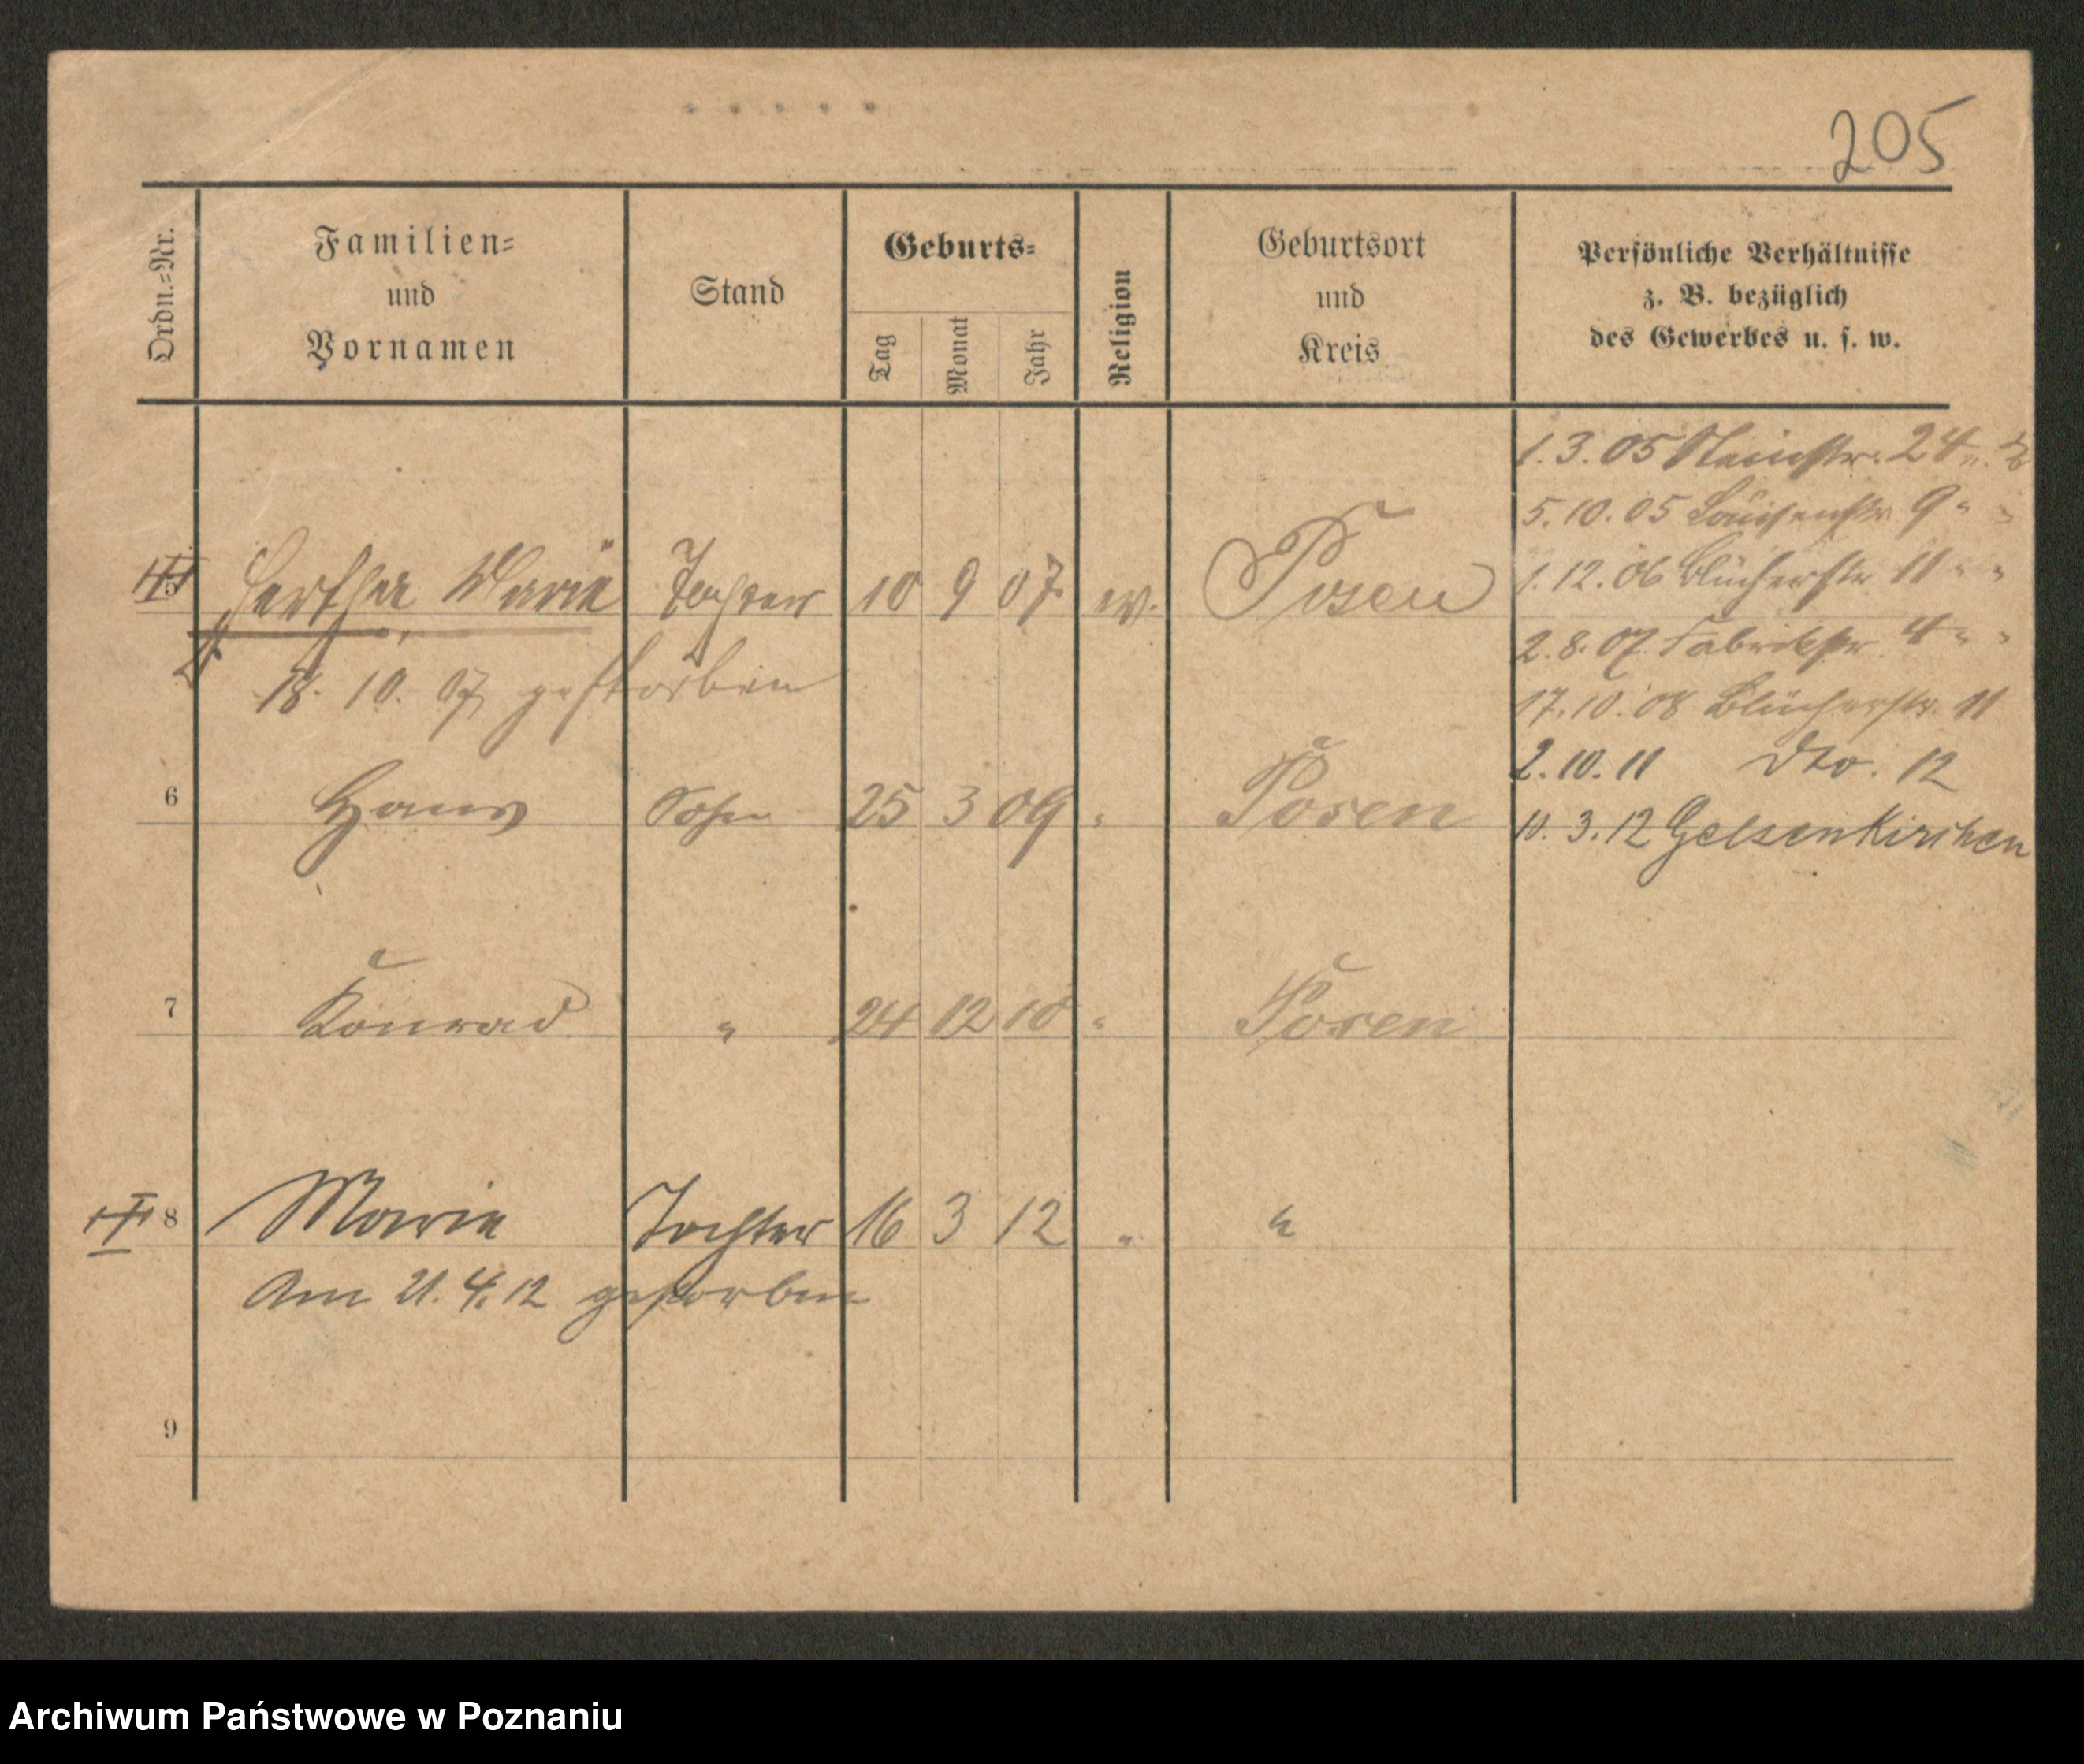 205
Ordn.-Nr.
Familien-
und
Vornamen
Stand
Geburts-
Tag
Monat
Jahr
Religion
Geburtsort
und
Kreis
Persönliche Verhältnisse
z. B. bezüglich
des Gewerbes u. s. w.
1.3.05 24
5.10.05 Louisenstr 9 " "
1.12.06 Blücherstr 11 " "
5 Marie Tochter 10 9 07 Posen
2.8.07 Fabrikstr. 4 " "
18. 10. 07 gestorben
17.10.08 Blücherstr. 11
2.10.11 Dto. 12
6 Hans Sohn 25 3 09 " Posen
10.3.12 Gelsenkirchen
7 Konrad " 24 12 10 " Posen
8 Marie Tochter 16 3 12 " "
Am 21.4.12 gestorben
9
Archiwum Państwowe w Poznaniu